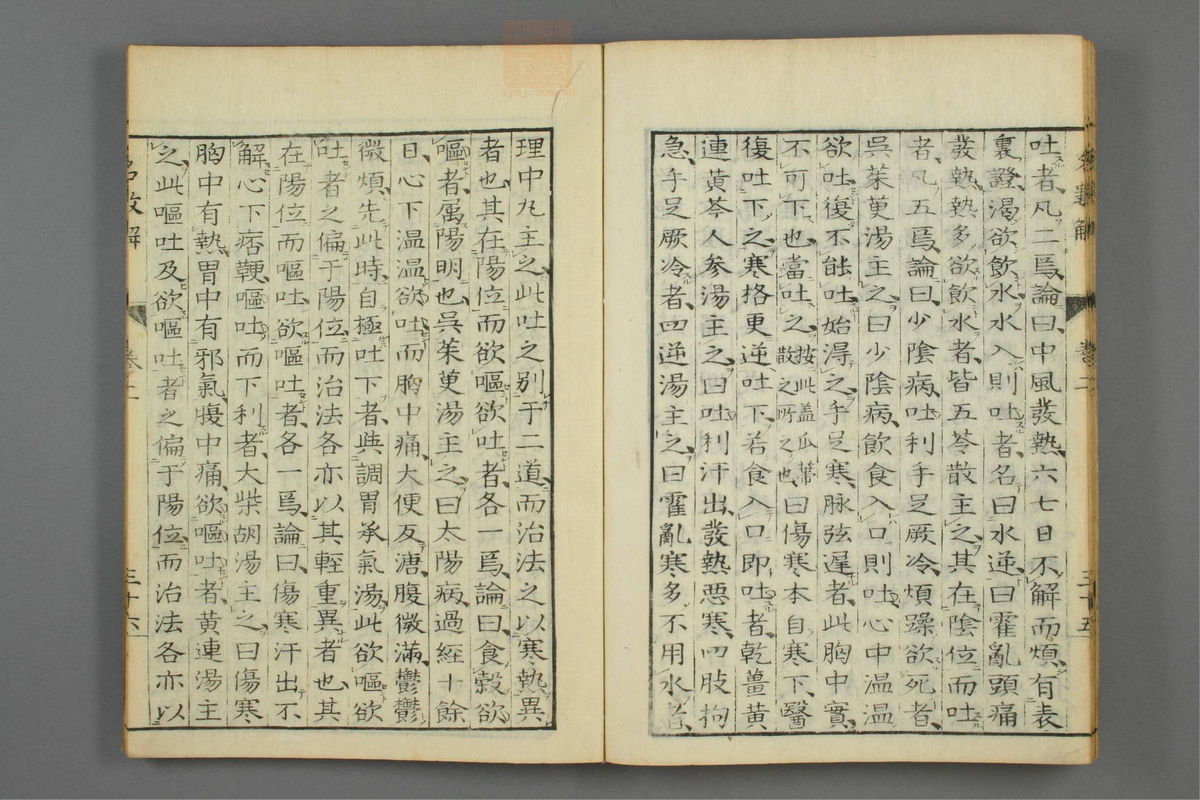 吐者凡二爲論曰中風發熱六七日不解而煩有表
裏證渴欲飲水水入則吐者名曰水逆曰霍亂頭痛
發熱熱多欲飲水者皆五苓散主之其在陰位而吐
者凡五爲論曰少陰病吐利手足厥冷煩躁欲死者
吳茱萸湯主之曰少陰病飲食入口則吐心中温温
欲吐復不能吐始淂之手足寒脉弦遲者此胸中實
不可下也當吐之按此盖瓜蔕散之所之也曰傷寒本自寒下醫
復吐下之寒格更逆吐下若食入口即吐者乾薑黄
連黄芩人参湯主之曰吐利汗出發熱悪寒四肢拘
急手足厥冷者四逆湯主之曰霍亂寒多不用水者
三十五
理中丸主之此吐之別于二道而治法之以寒熱異
者也其在陽位而欲嘔欲吐者各一爲論曰食穀欲
嘔者属陽明也吳茱萸湯主之曰太陽病過経十餘
日心下温温欲吐而胸中痛大便反溏腹微滿鬱鬱
微煩先此時自極吐下者與調胃承氣湯此欲嘔欲
吐者之偏于陽位而治法各亦以其輕重異者也其
在陽位而嘔吐欲嘔吐者各一爲論曰傷寒汗出不
解心下痞鞕嘔吐而下利者大柴胡湯主之曰傷寒
胸中有熱胃中有邪氣腹中痛欲嘔吐者黄連湯主
之此嘔吐及欲嘔吐者之偏于陽位而治法各亦以
三十六